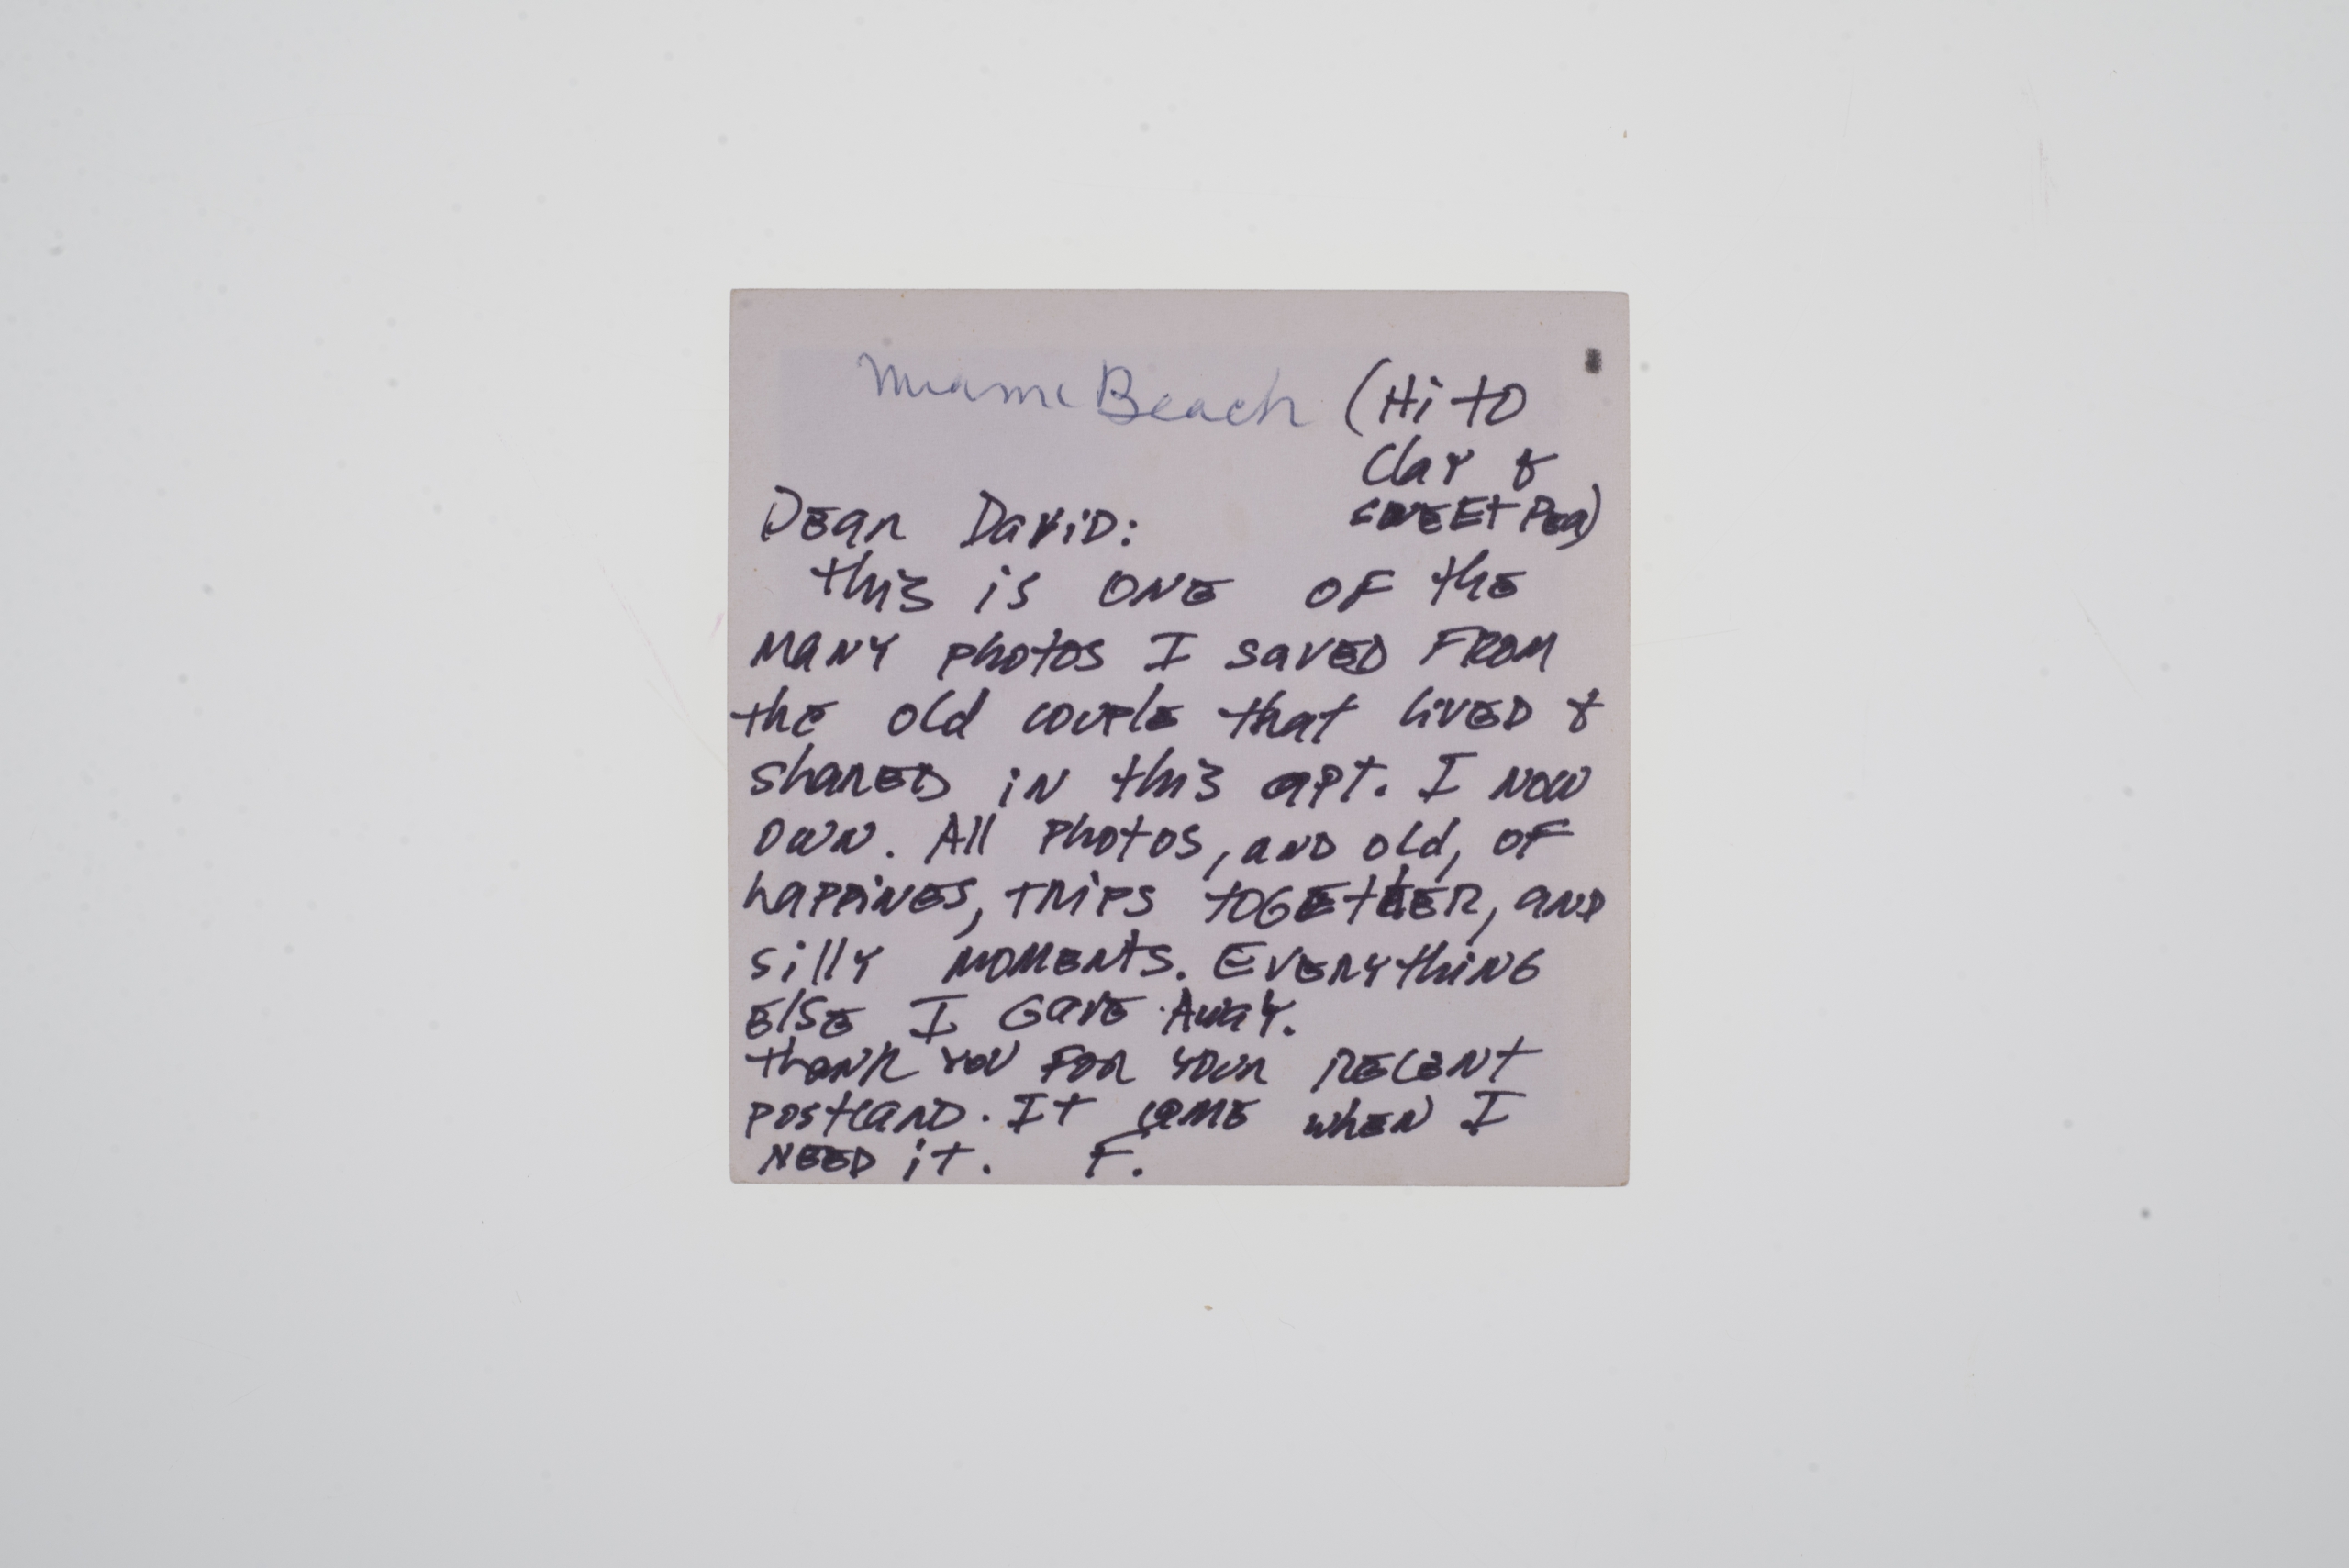 Miami Beach (Hi to
Clay &
SWEEt Pea)
Dear David:
this is ONE OF the
MANY photos I saved FROM
the old couple that lived &
shared in this apt. I now
own. All photos, and old, of
happines, trips together, and
silly moments. Everything
else I gave Away.
thank you for your recent
postcard. It came when I
need it. F.